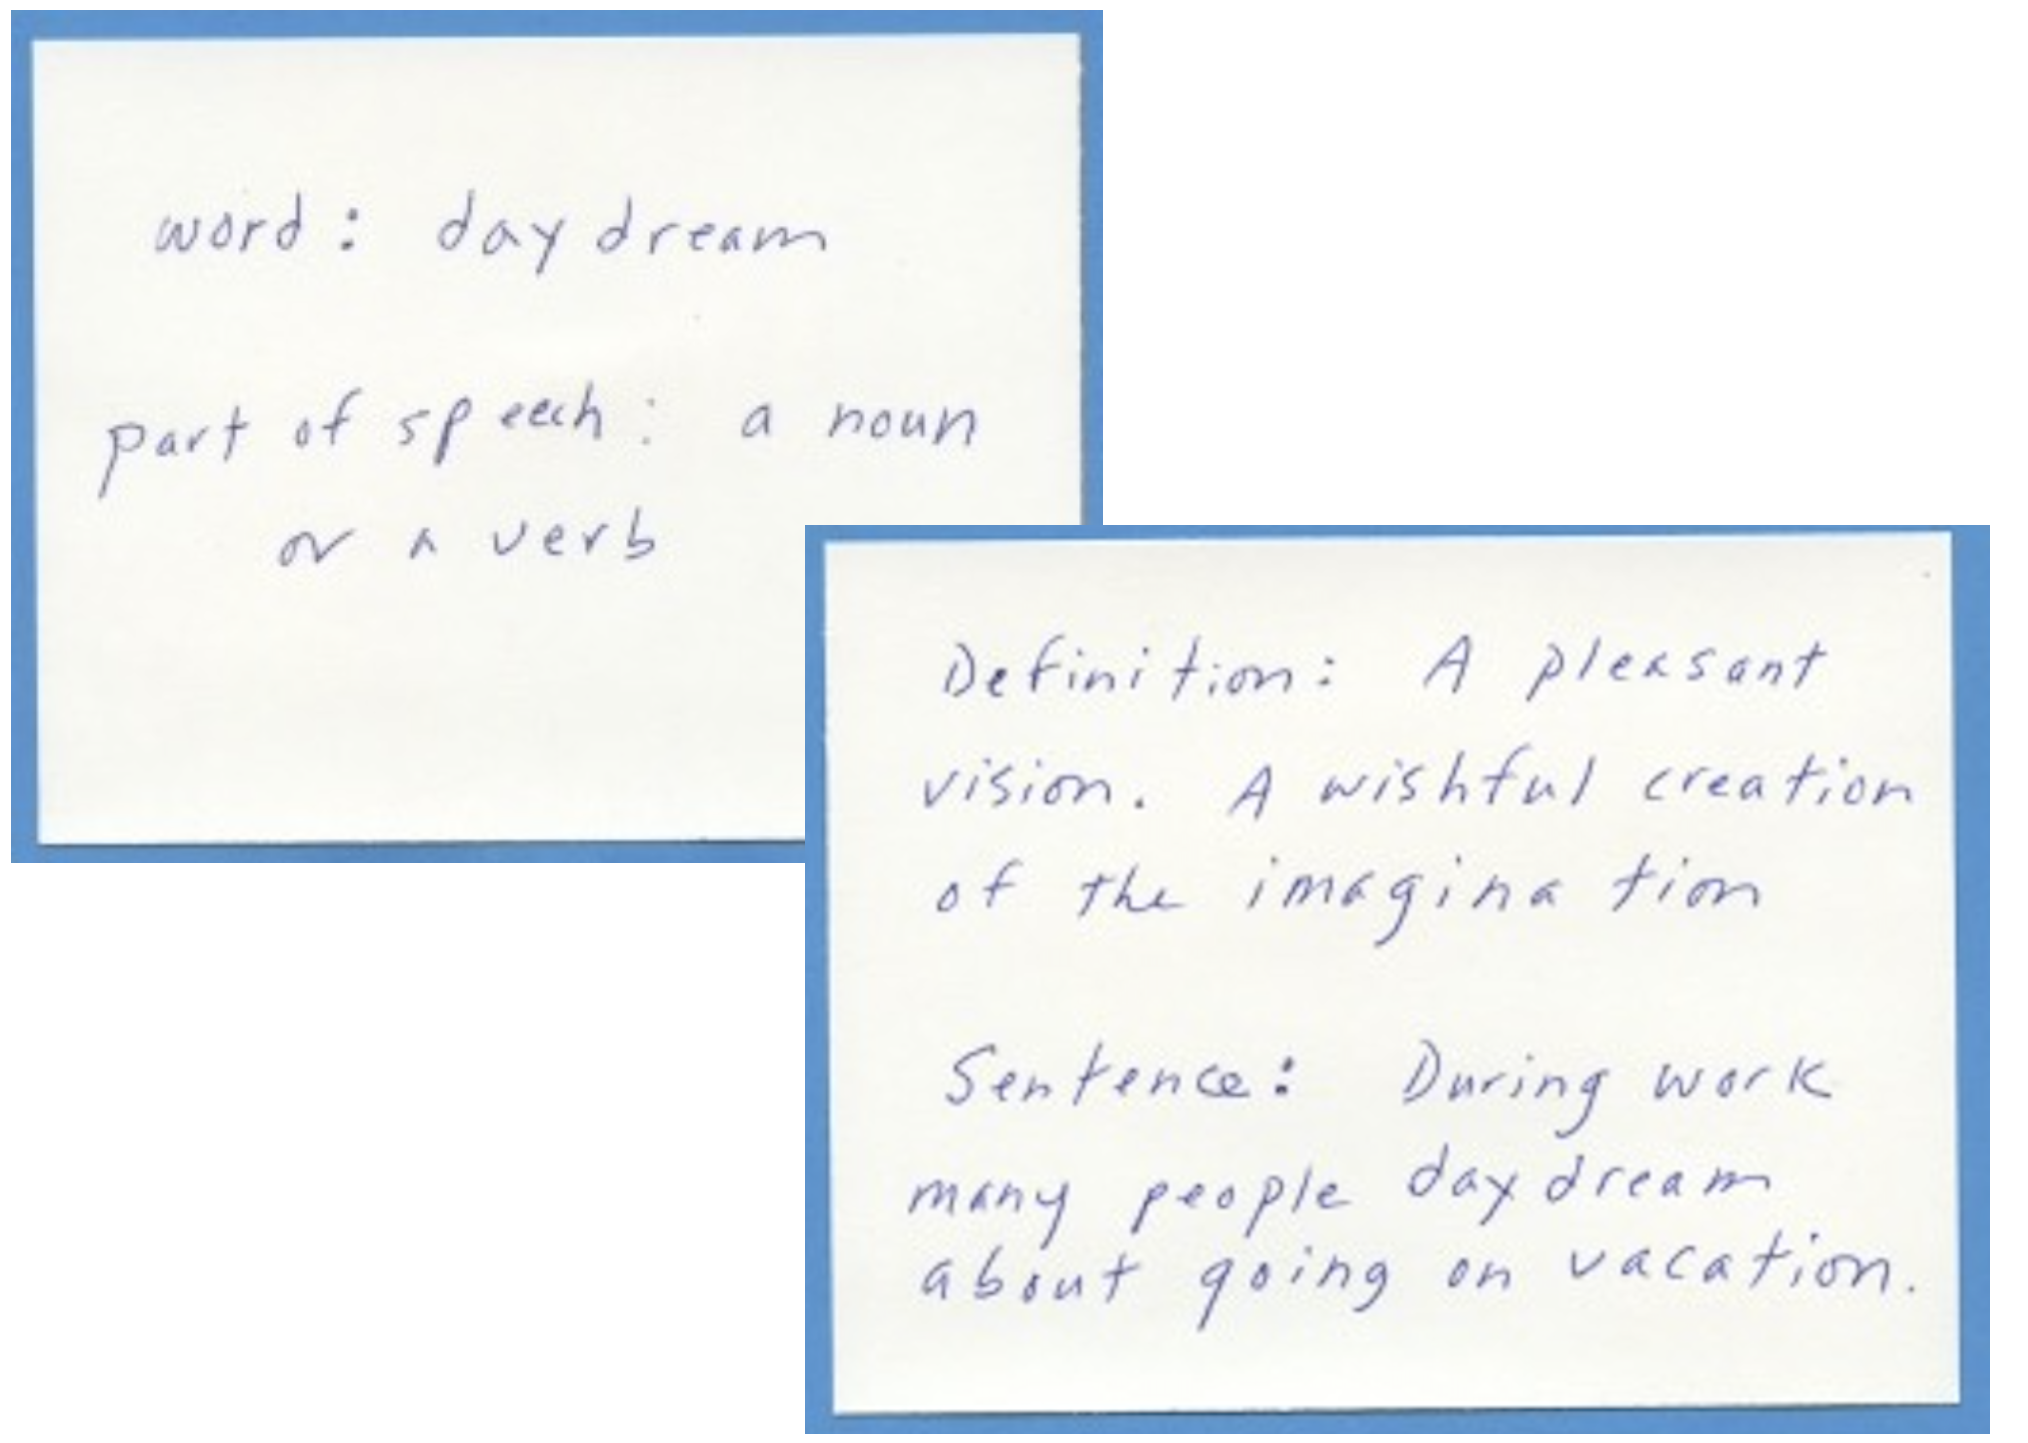 word: daydream
part of speech: a noun
or a verb
Definition: A pleasant
vision. A wishful creation
of the imagination
Sentence: During work
many people daydream
about going on vacation.